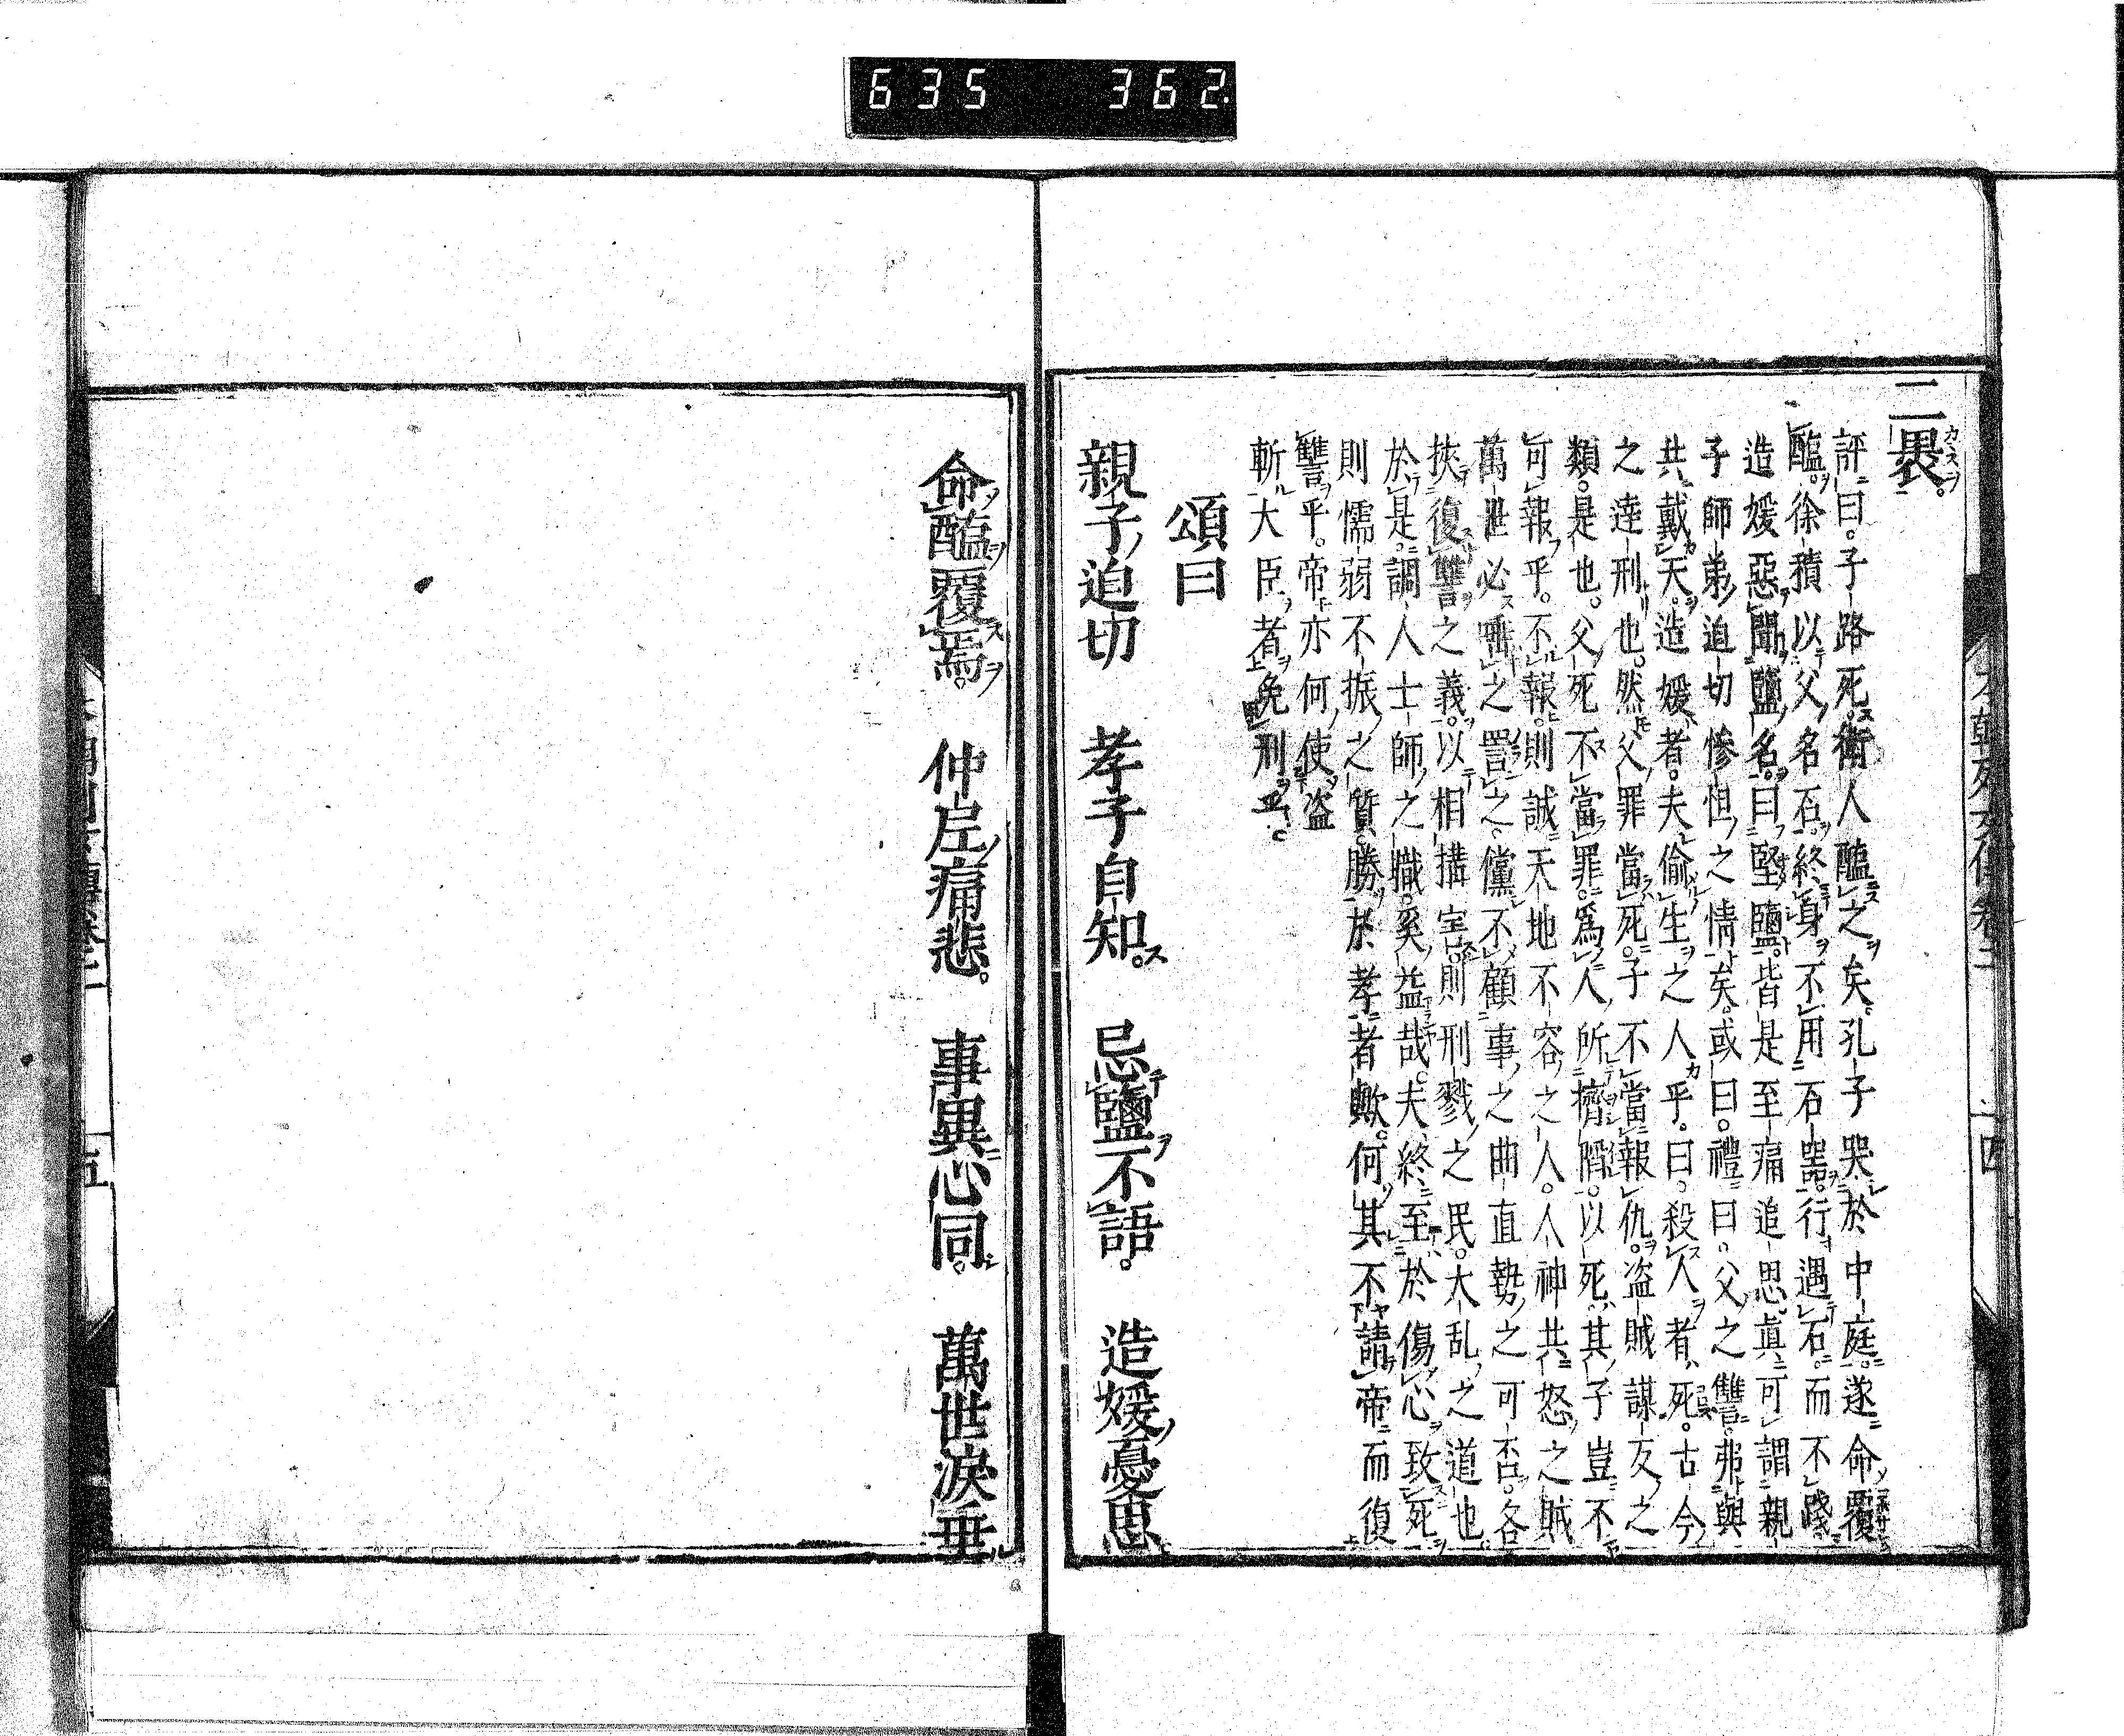 635 362
二畏。
評曰。子路死。衛人醢之矣。孔子哭於中庭。遂命覆
醢。徐積以父名石。終身不用石噐。行遇石。而不踐。
造媛惡聞鹽名。曰堅鹽。皆是至痛追思。眞可謂親
子師弟迫切慘怛之情矣。或曰。禮曰。父之讐。弗與
共戴天。造媛者。夫偷生之人乎。曰。殺人者死。古今
之達刑也。然父罪當死。子不當報仇。盗賊謀反之
類。是也。父死不當罪。爲人所擠陷。以死。其子豈不
可報乎。不報。則誠天地不容之人。人神共怒之賊
萬世必唾之詈之。儻不顧事之曲直勢之可否。各
挾復讐之義。以相搆害。則刑戮之民。大乱之道也
於是。調人士師之職。奚益哉。夫終至於傷心致死
則懦弱不振之質。勝於孝者歟。何其不請帝而復
讐乎。帝亦何使盗
斬大臣者免刑乎。
頌曰
親子迫切 孝子自知。 忌鹽不語。 造媛憂思
命醢覆焉。 仲𠀉痛悲。 事異心同。 萬世淚垂
四
五